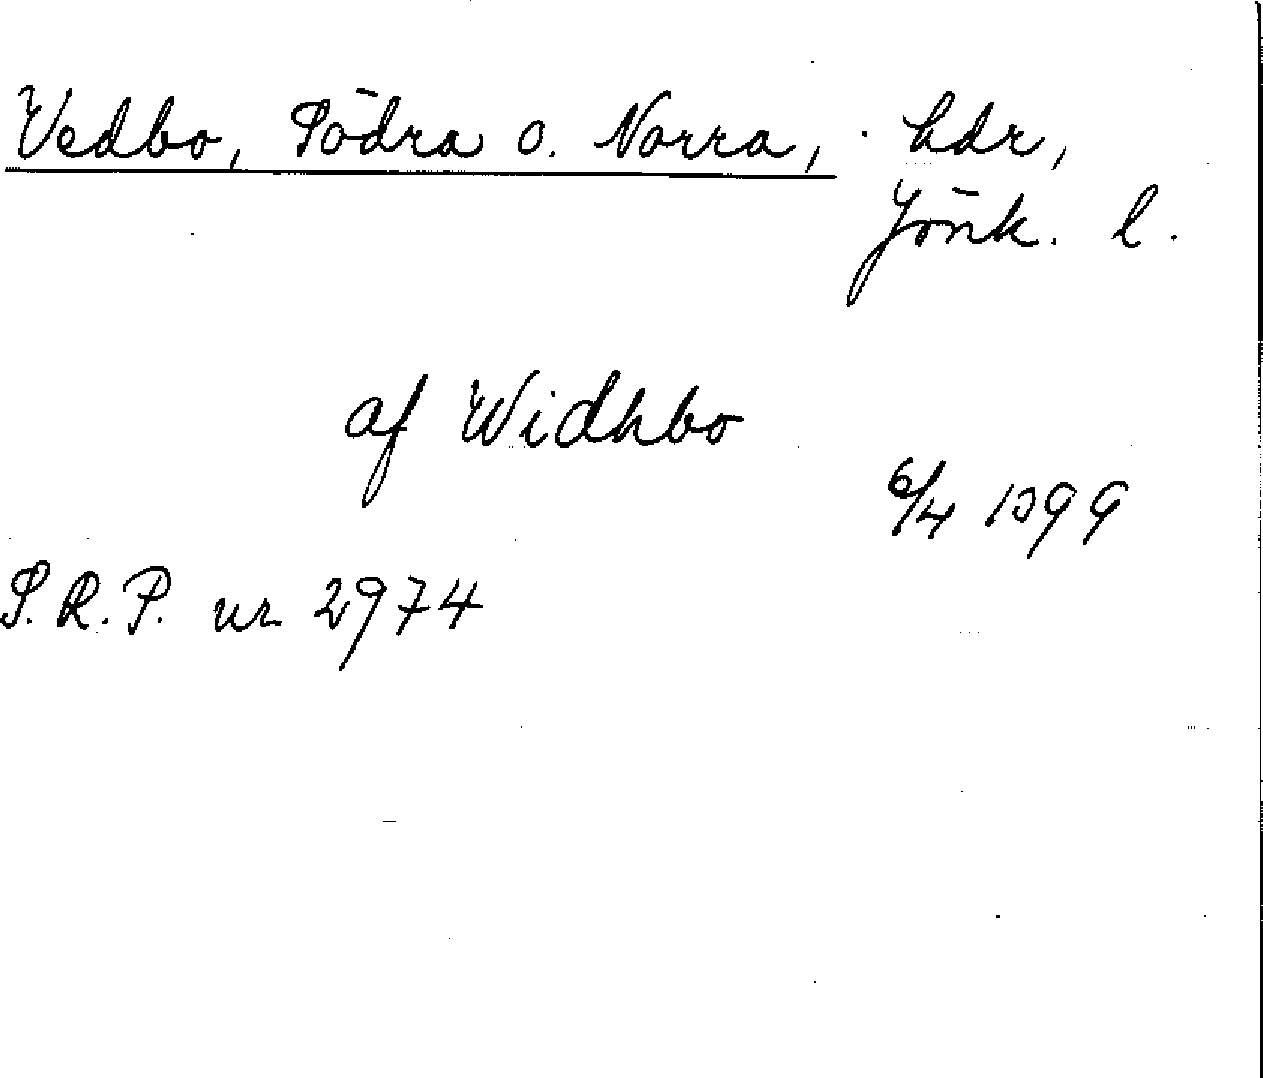 Vedbo, Södra o. Norra, hdr,
Jönk. l.
af Widhbo
6/4 1399
S.R.P. nr 2974